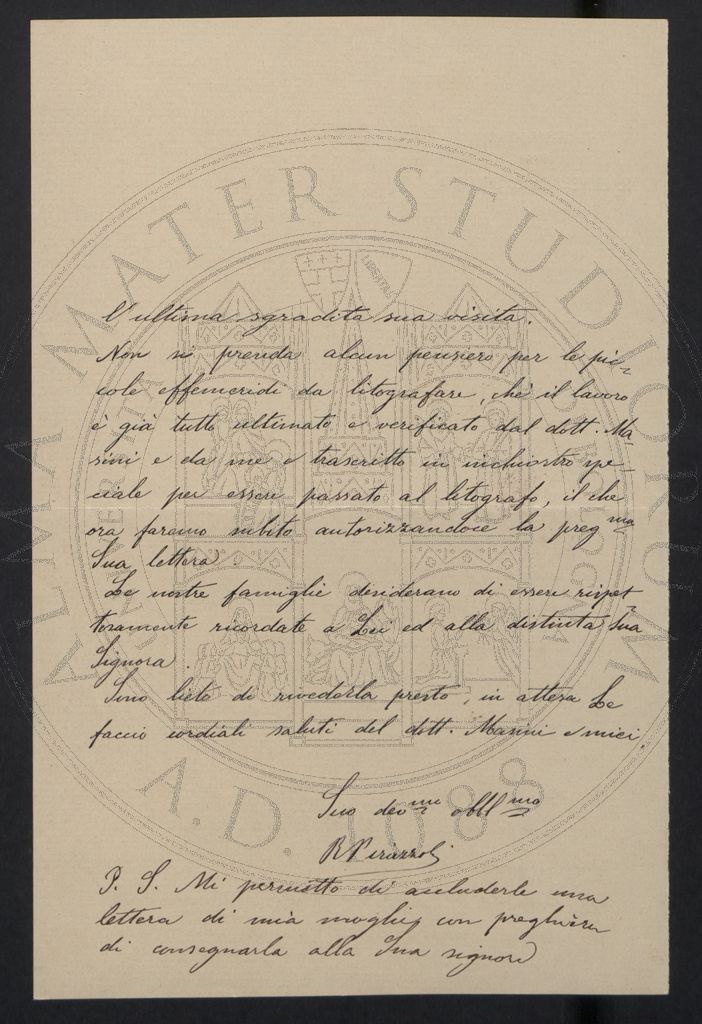 l'ultima sgradita sua visita.
Non si prenda alcun pensiero per le pic-
cole effemeridi da litografare, chè il lavoro
è già tutto ultimato e verificato dal dott. Ma
sini e da me e trascritto in inchiostro spe-
ciale per essere passato al litografo, il che
ora faremo subito autorizzandoce la preg.ma
Sua lettera.
Le nostre famiglie desiderano di essere rispet
tosamente ricordate a Lei ed alla distinta Sua
Signora.
Sono lieto di rivederla presto, in attesa Le
faccio cordiali saluti del dott. Masini e miei
Suo dev.mo obbl.mo
R Pirazzoli
P. S. Mi permetto di accluderle una
lettera di mia moglie, con preghiera
di consegnarla alla Sua signora
ALMA MATER STUDIORUM
A.D. 1088